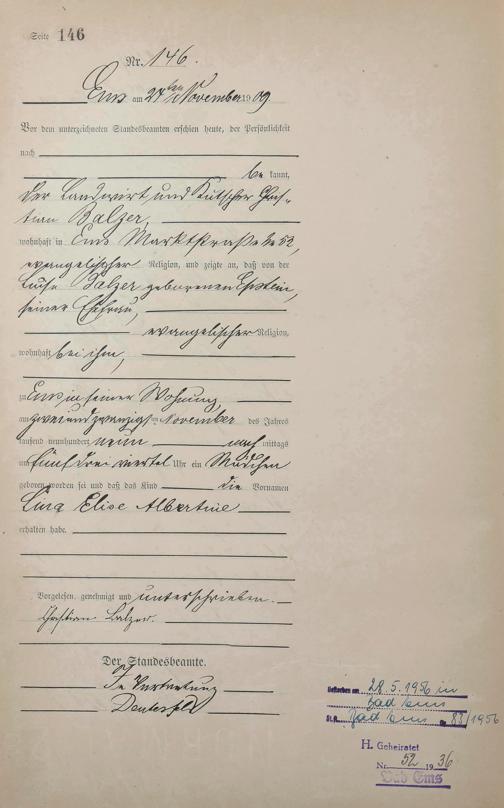 Seite 146
Nr. 146.
Ems am 24ten November 1909.
Vor dem unterzeichneten Standesbeamten erschien heute, der Persönlichkeit
nach
be kannt,
der Landwirt und Kutscher Chris-
tian Balzer,
wohnhaft in Ems Marktstraße No 52,
evangelischer Religion, und zeigte an, daß von der
Luise Balzer geborenen Epstein,
seiner Ehefrau,
evangelischer Religion,
wohnhaft bei ihm,
zu Ems in seiner Wohnung,
am zweiundzwanzigsten November des Jahres
tausend neunhundert neun nach mittags
um fünf drei viertel Uhr ein Mädchen
geboren worden sei und daß das Kind die Vornamen
Lina Elise Albertine
erhalten habe.
Vorgelesen, genehmigt und unterschrieben.
Christian Balzer.
Der Standesbeamte.
In Vertretung
Gestorben am 28.5.1956 in
Bad Ems
St.A. Bad Ems Nr. 83/1956
H. Geheiratet
Nr. 52 1936
Bad Ems